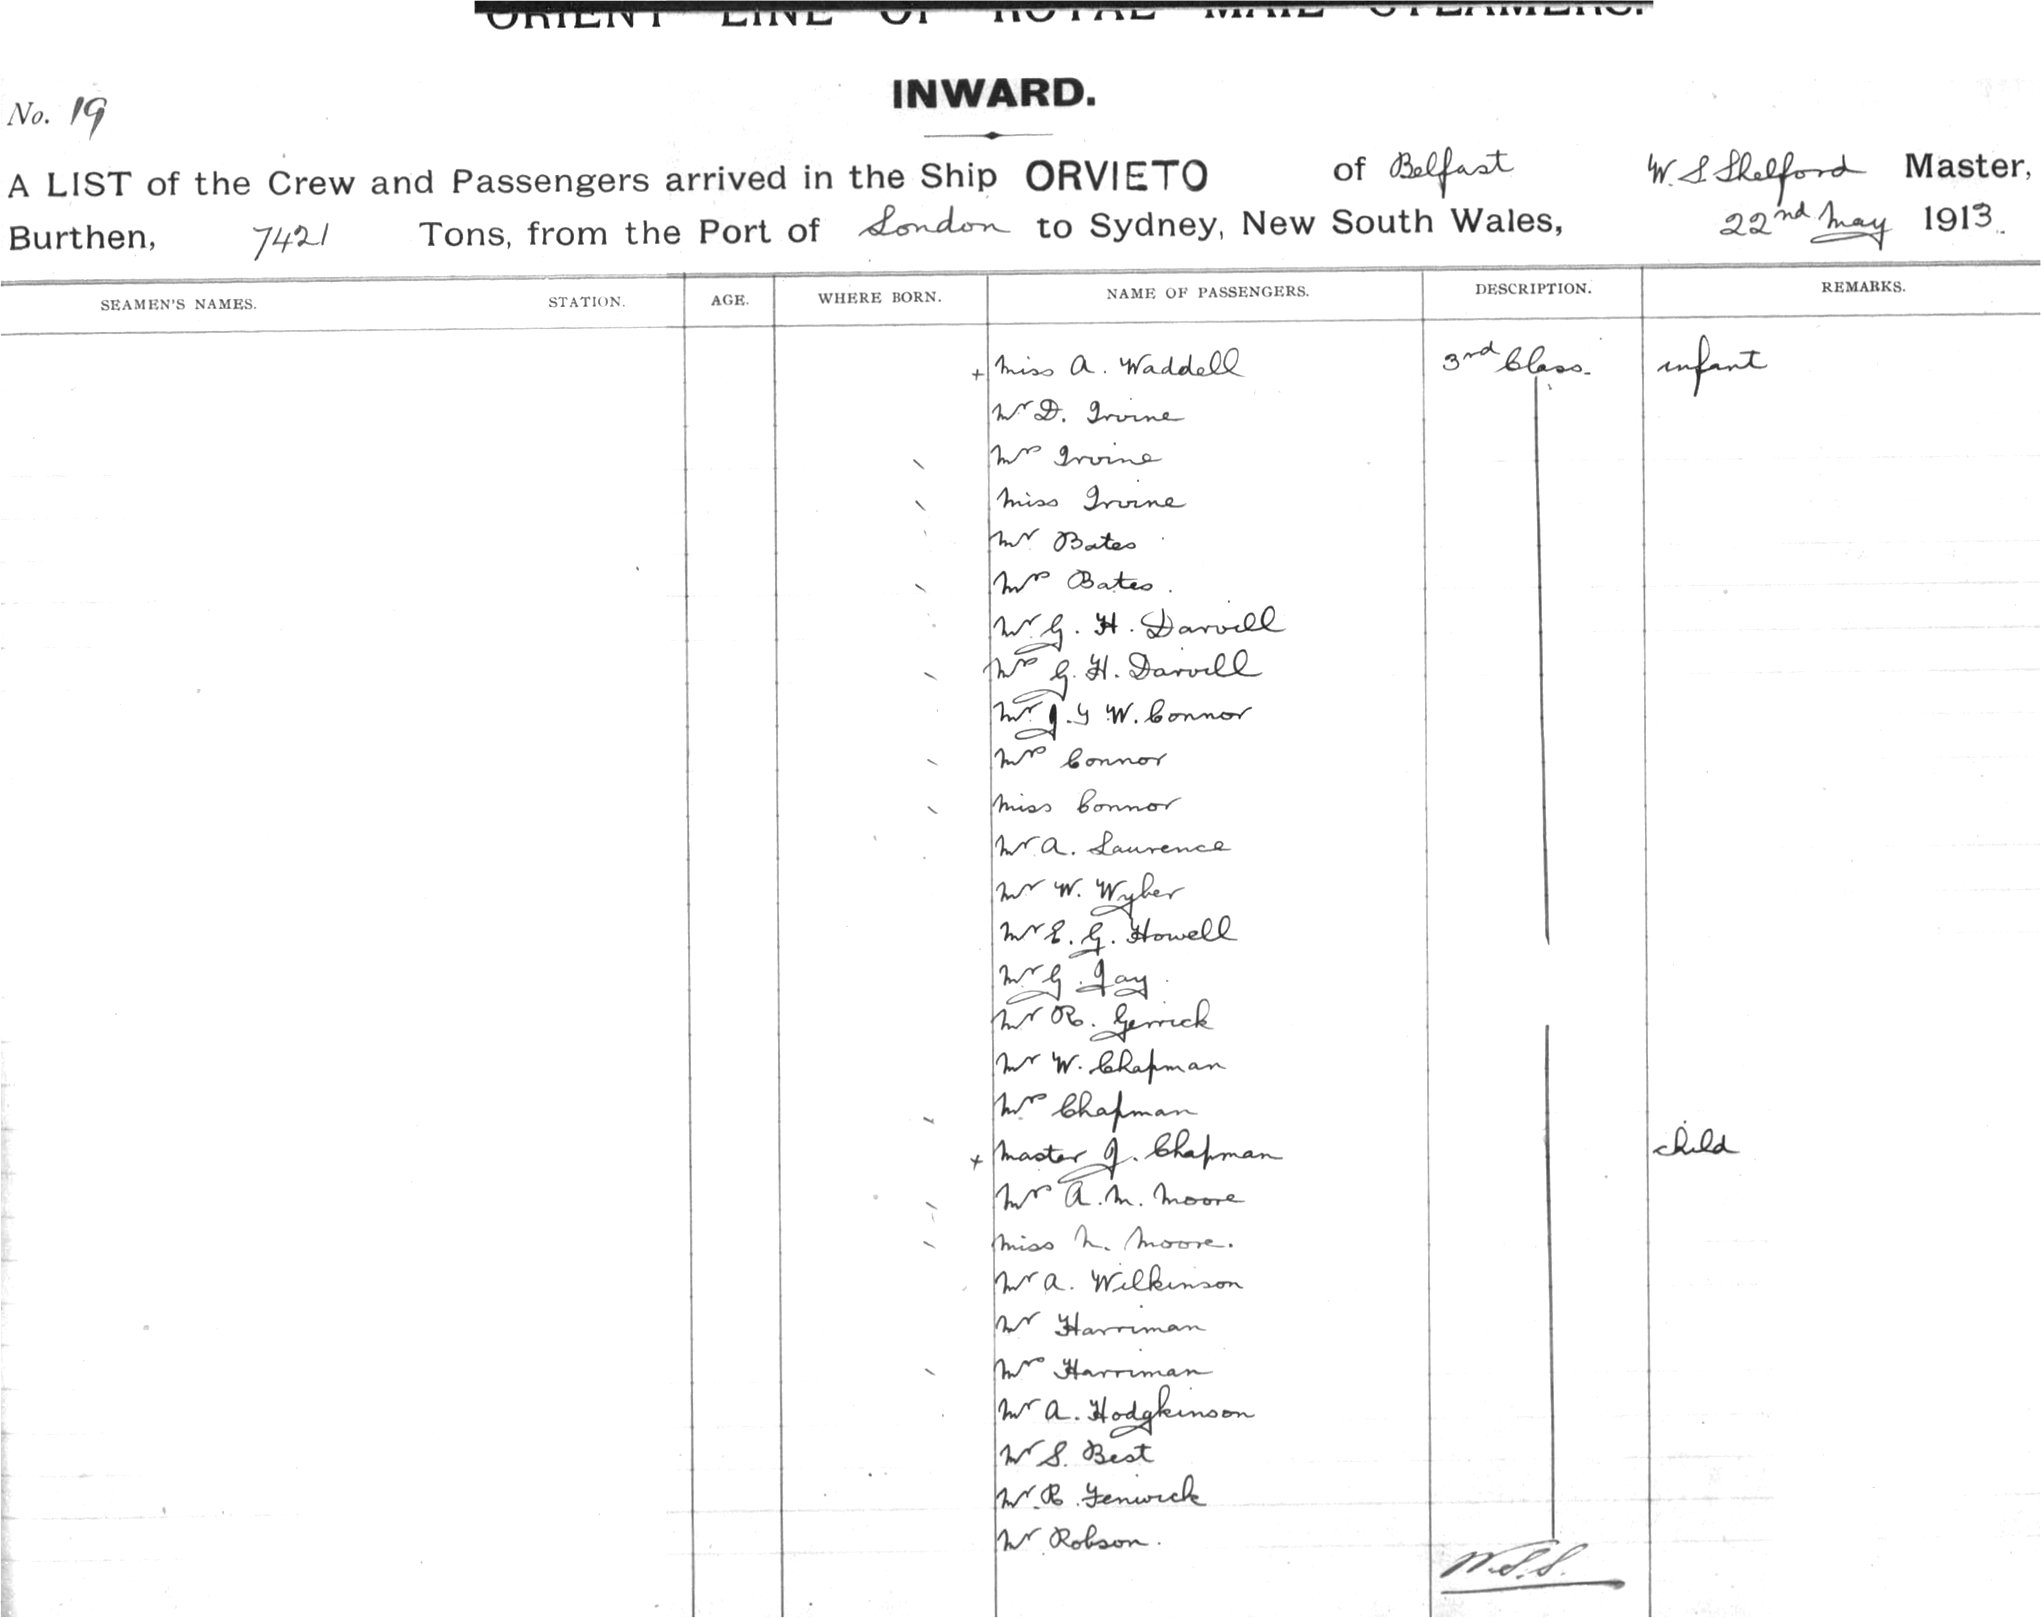 ORIENT LINE OF ROYAL MAIL STEAMERS.
INWARD.
No. 19
A LIST of the Crew and Passengers arrived in the Ship ORVIETO of Belfast W. S. Shelford Master,
Burthen, 7421 Tons, from the Port of London to Sydney, New South Wales, 22nd May 1913.
SEAMEN'S NAMES. STATION. AGE. WHERE BORN. NAME OF PASSENGERS. DESCRIPTION. REMARKS.
+ Miss A. Waddell 3rd Class. infant
Mr D. Irvine
Mrs Irvine
Miss Irvine
Mr Bates
Mrs Bates.
Mr G. H. Darvill
Mrs G. H. Darvill
Mr J. Y W. Connor
Mrs Connor
Miss Connor
Mr A. Laurence
Mr W. Wyber
Mr E. G. Howell
Mr G. Jay
Mr R. Gerrick
Mr W. Chapman
Mrs Chapman
+ Master J. Chapman child
Mrs A. M. Moore
Miss N. Moore.
Mr A. Wilkinson
Mr Harriman
Mrs Harriman
Mr A. Hodgkinson
Mr S. Best
Mr R. Fenwick
Mr Robson.
W.S.S.